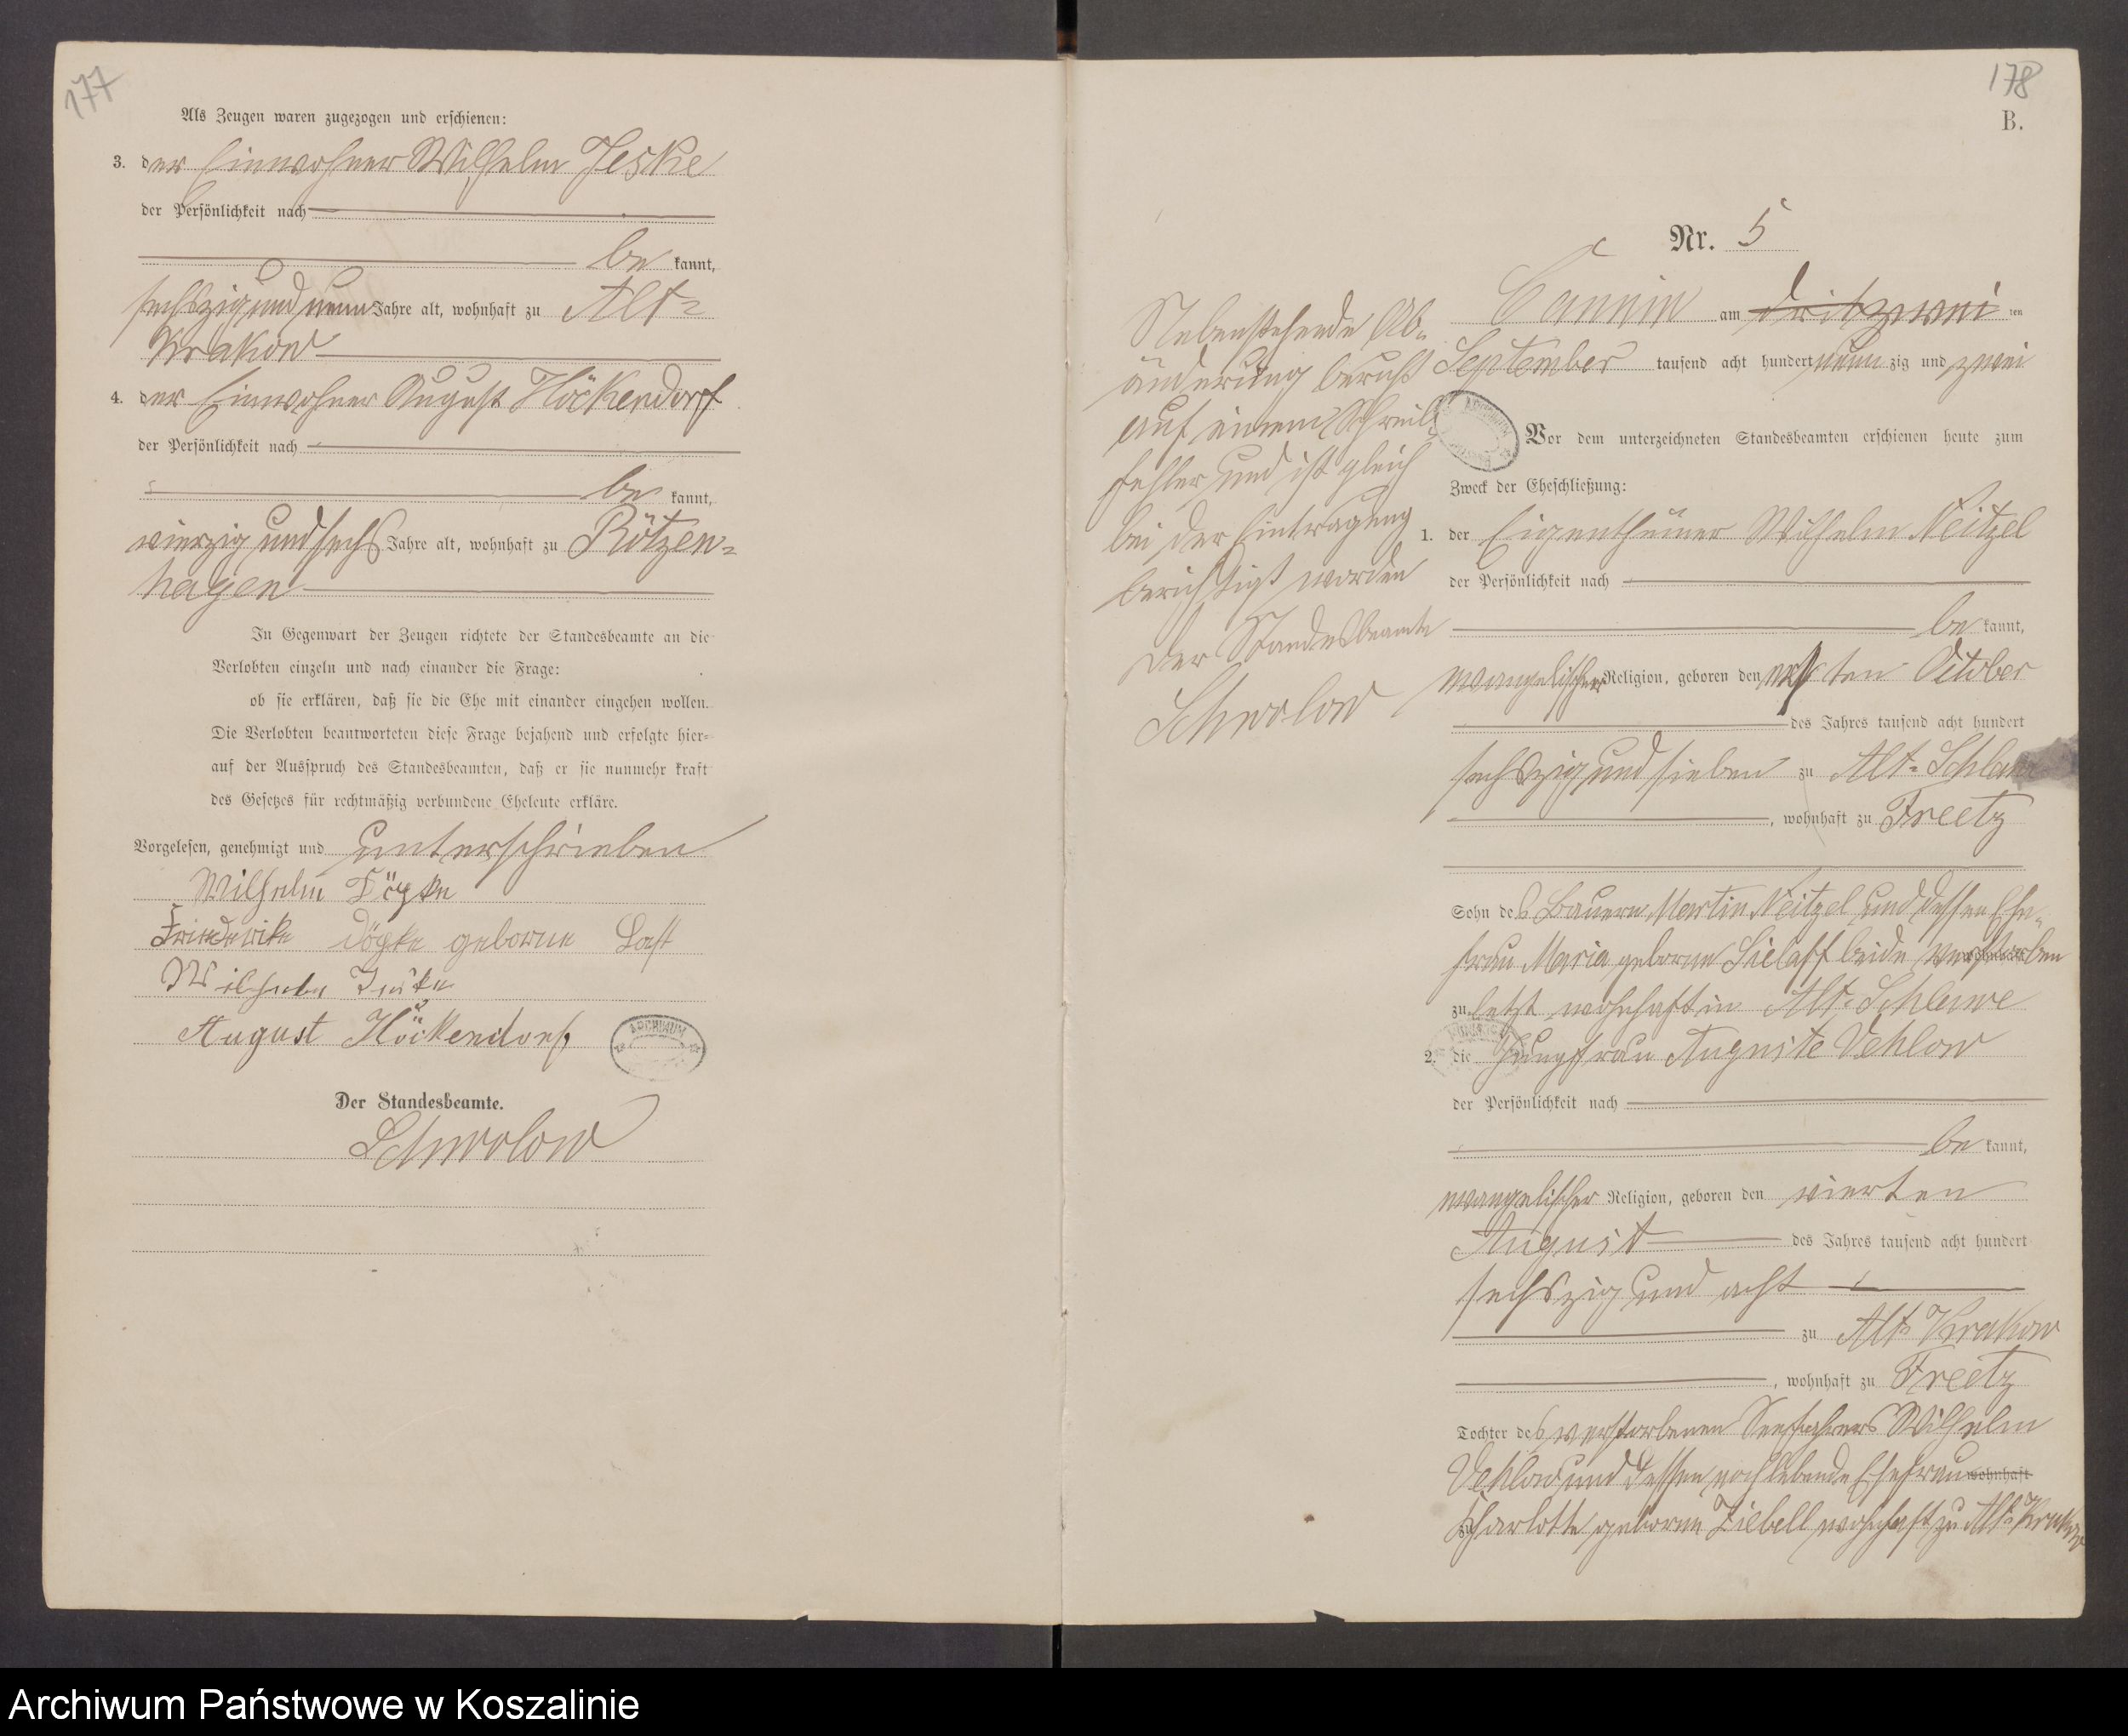 177
Als Zeugen waren zugezogen und erschienen:
3. der Einwohner Wilhelm Jeske
der Persönlichkeit nach
be kannt,
sechszig und neun Jahre alt, wohnhaft zu Alt-
Krakow
4. der Einwohner August Höckendorf
der Persönlichkeit nach
be kannt,
vierzig und sechs Jahre alt, wohnhaft zu Rötzen-
hagen
In Gegenwart der Zeugen richtete der Standesbeamte an die
Verlobten einzeln und nach einander die Frage:
ob sie erklären, daß sie die Ehe mit einander eingehen wollen.
Die Verlobten beantworteten diese Frage bejahend und erfolgte hier-
auf der Ausspruch des Standesbeamten, daß er sie nunmehr kraft
des Gesetzes für rechtmäßig verbundene Eheleute erkläre.
Vorgelesen, genehmigt und unterschrieben
Wilhelm
Friederike geborne Last
Wilhelm Jeske
August Höckendorf
ARCHIWUM
Der Standesbeamte.
Schwolow
178
B.
Nr. 5
Nebenstehende Ab-
änderung beruht
auf einem Schreib
fehler und ist gleich
bei der Eintragung
berichtigt worden
Der Standesbeamte
Schwolow
Cannin am zwei ten
September tausend acht hundert neun zig und zwei
Vor dem unterzeichneten Standesbeamten erschienen heute zum
Zweck der Eheschließung:
1. der Eigenthümer Wilhelm Neitzel
der Persönlichkeit nach
be kannt,
evangelischer Religion, geboren den ersten October
des Jahres tausend acht hundert
sechszig und sieben zu Alt-Schlawe
, wohnhaft zu Freetz
Sohn des Bauern Martin Neitzel und dessen Ehe-
frau Maria geborne Sielaff beide verstorben
zuletzt wohnhaft in Alt-Schlawe
2. die Jungfrau Auguste Vehlow
der Persönlichkeit nach
be kannt,
evangelischer Religion, geboren den vierten
August des Jahres tausend acht hundert
sechszig und acht
zu Alt-Krakow
, wohnhaft zu Freetz
Tochter des verstorbenen Seefahrers Wilhelm
Vehlow und dessen noch lebende Ehefrau wohnhaft
Charlotte geborne Ziebell wohnhaft zu Alt-Krakow
Archiwum Państwowe w Koszalinie